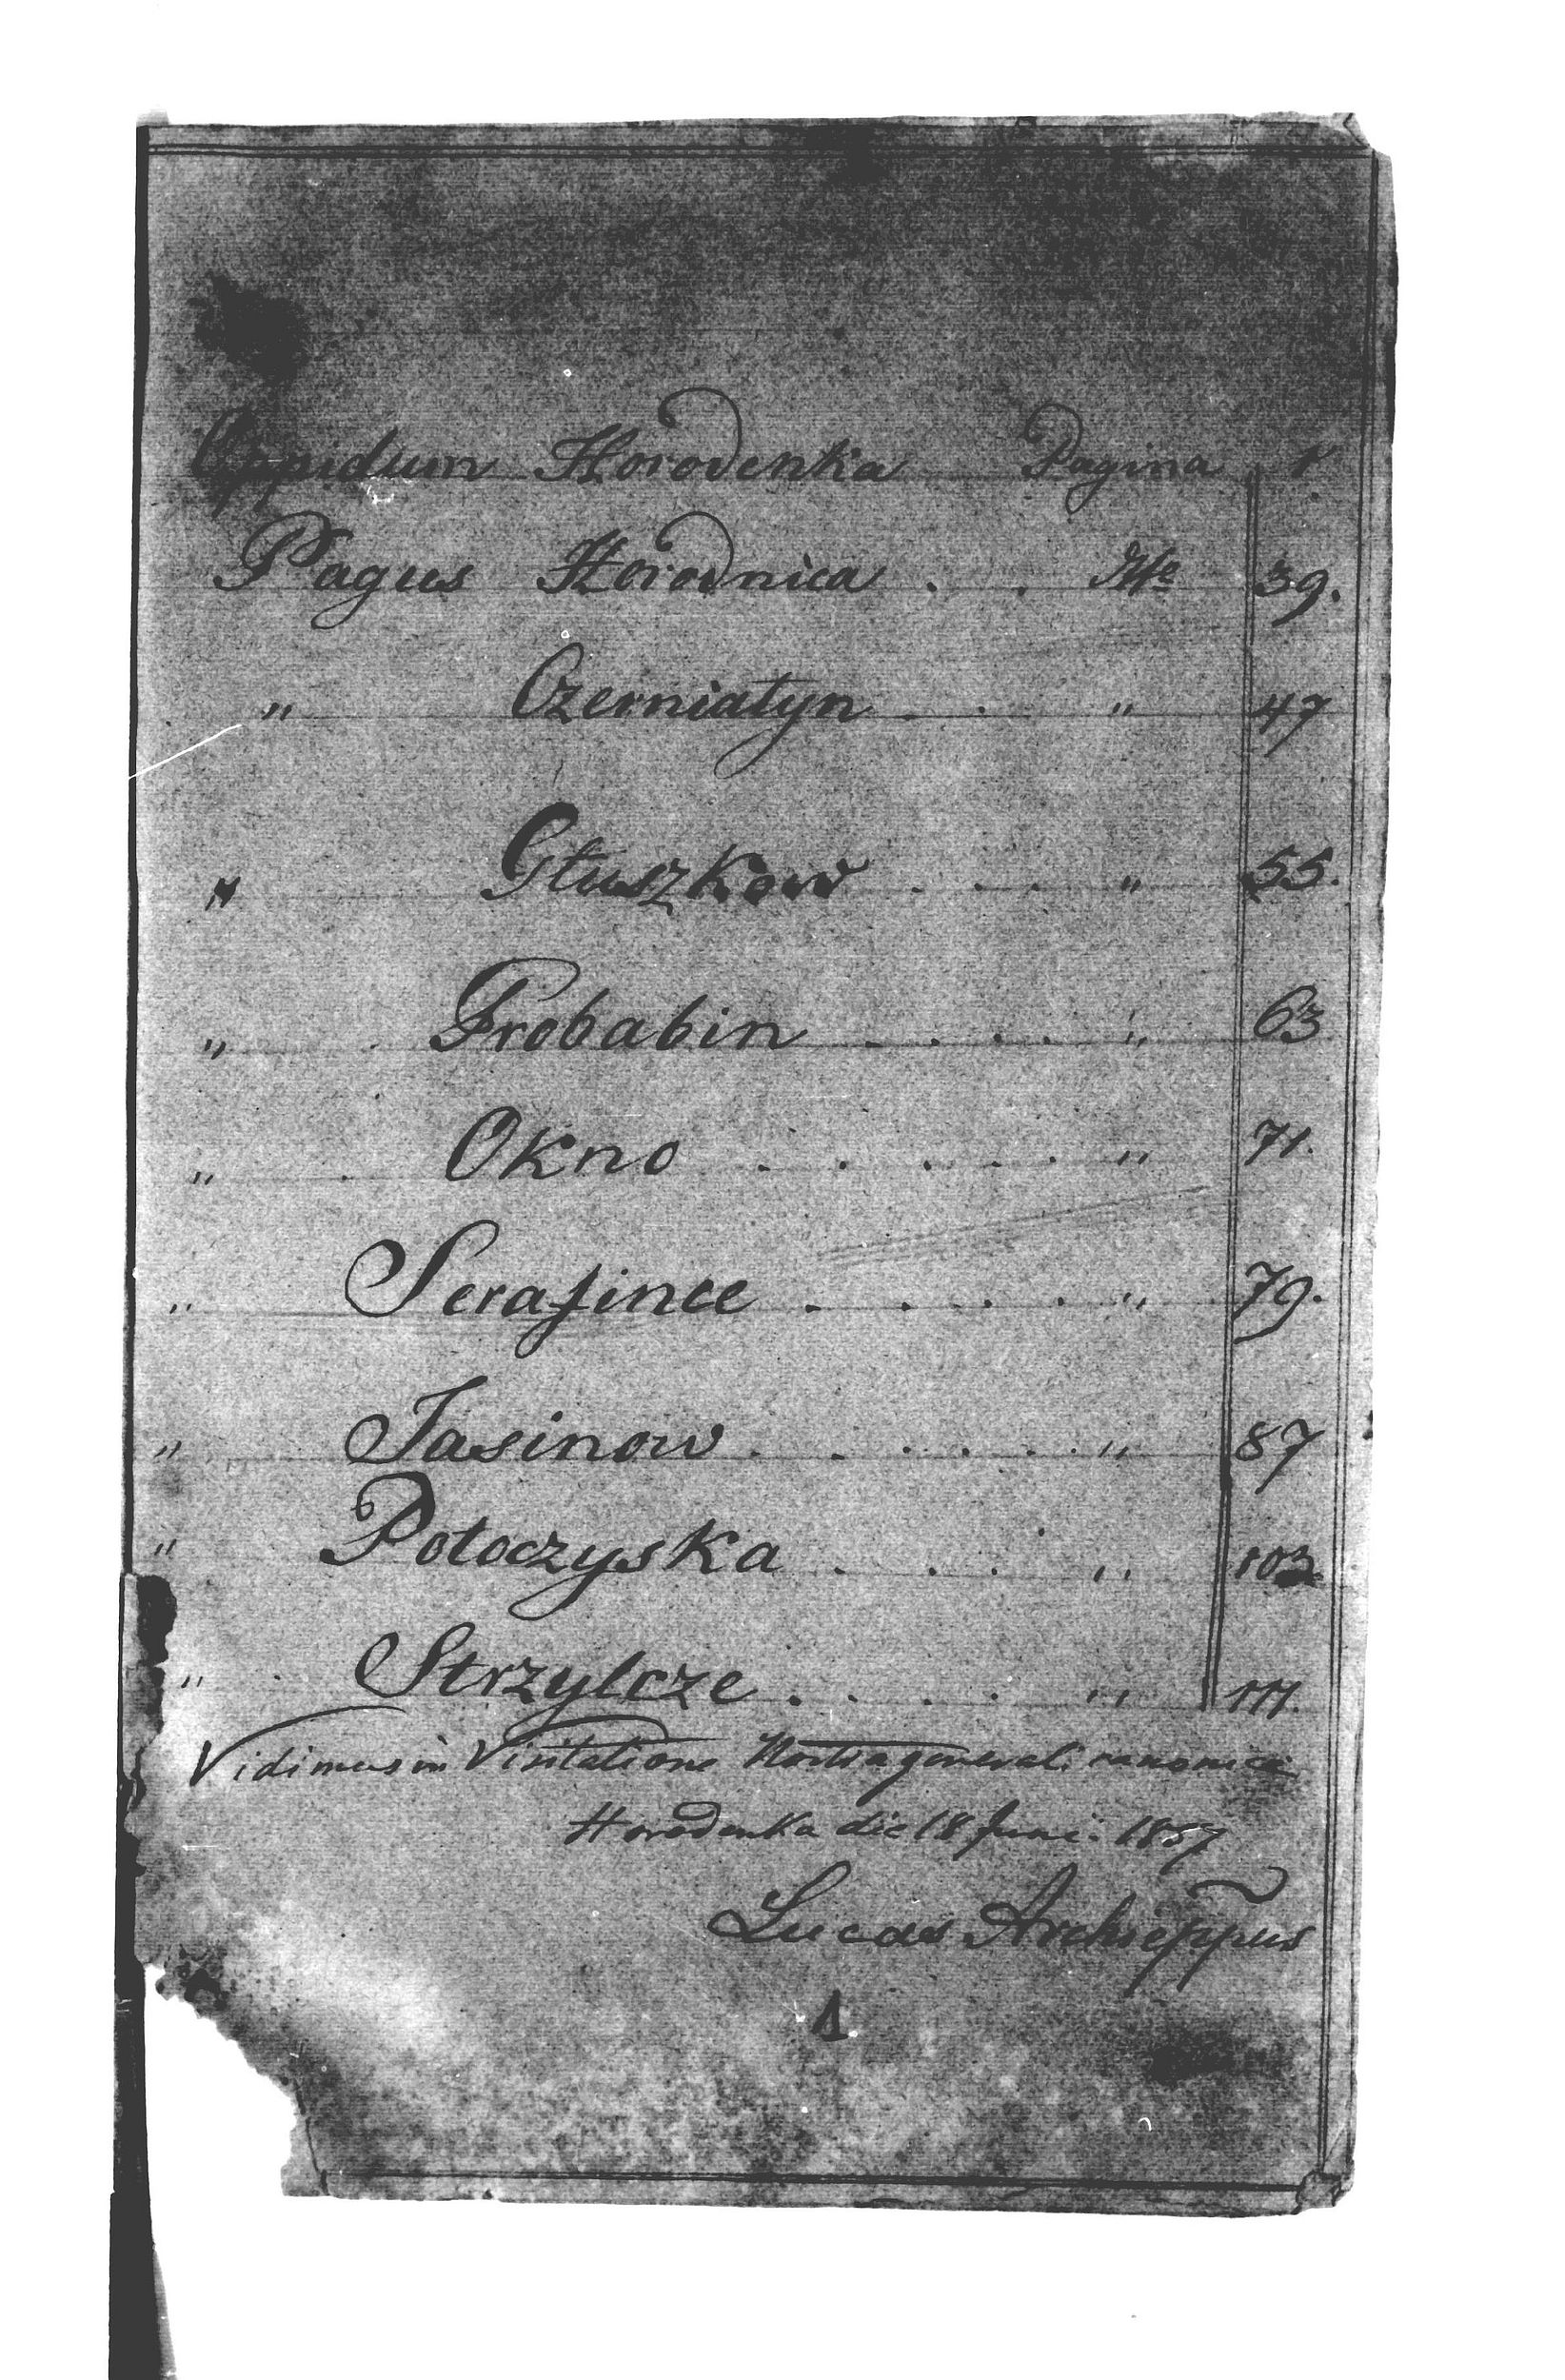 Oppidum Horodenka Pagina 1
Pagus Horodnica . . 39.
" Czerniatyn . . " 47
" Głuszkow . . . " 55.
" Probabin . . . . " 63
" Okno . . . . . " 71.
" Serafince . . . . . " 79.
" Jasinow . . . . . . " 87
" Potoczyska . . . . " 103
" Strzylcze . . . . " 111.
Vidimus in Visitatione Nostra generali canonica
Horodenka die 18 Juni: 1857
Lucas Archieppus
1